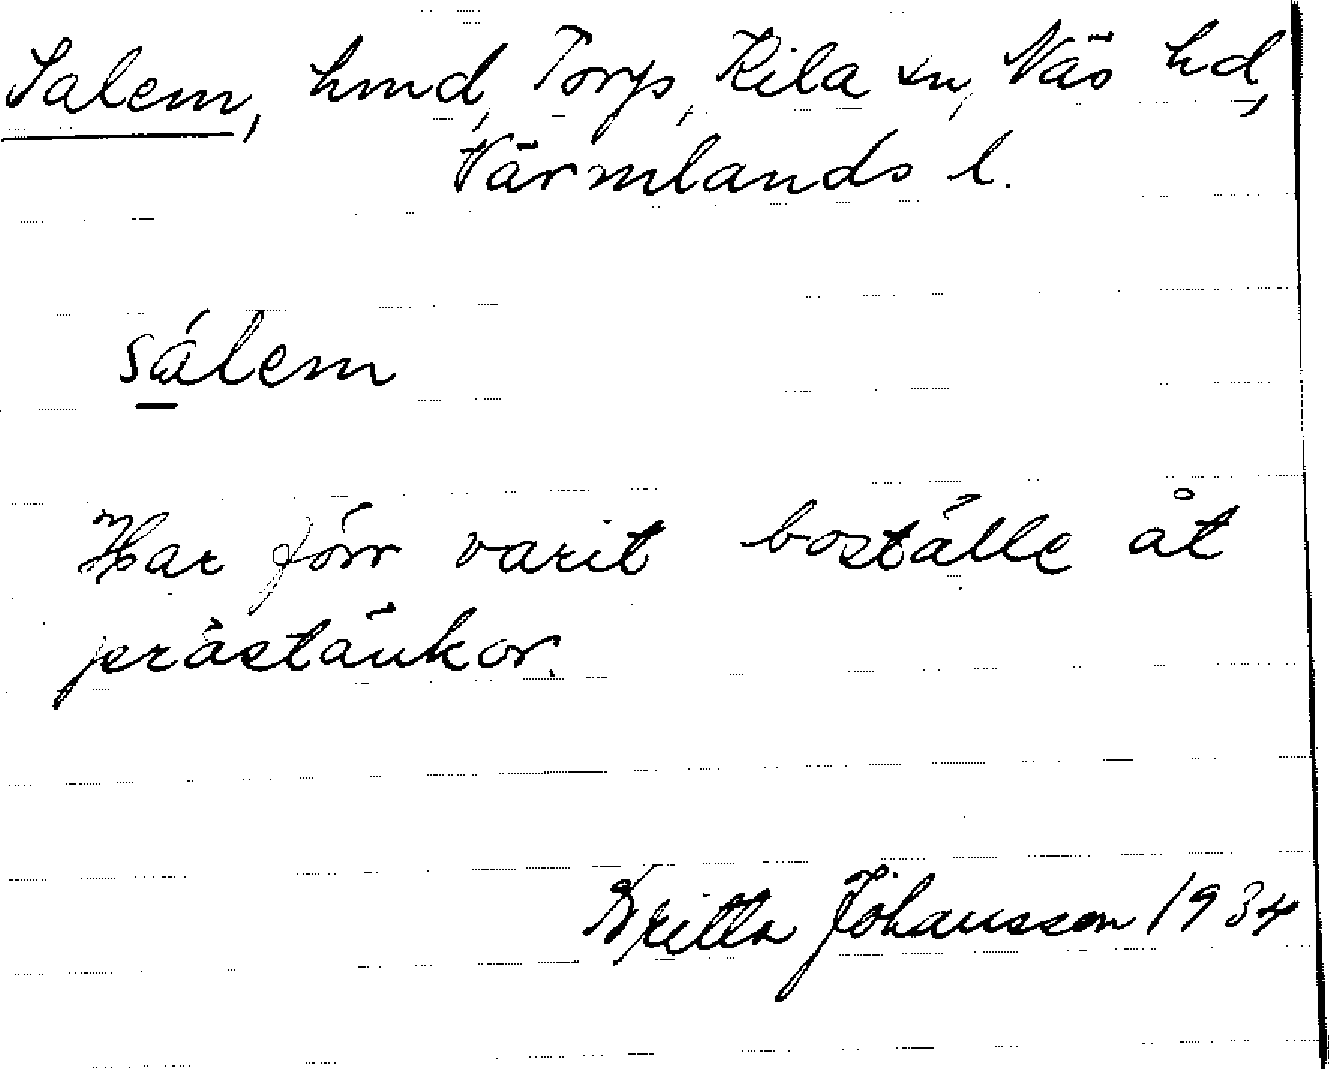 Salem, hmd, Torp, Kila sn, Näs hd,
Värmlands l.
sálem
Har förr varit boställe åt
prästänkor.
Britta Johansson 1934